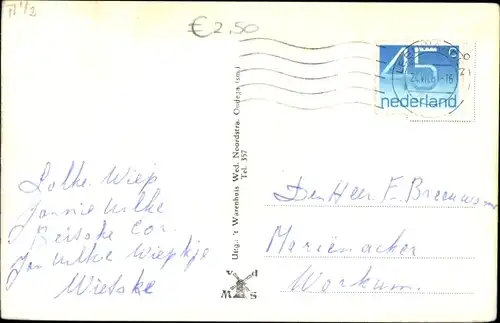 € 2,50
45 c
nederland
Uitg.: 't Warenhuis Wed. Noordstra. Oudega (sm.)
Tel. 357
Lolke. Wiep
Jannie Wilke
Reitske Cor.
Jan Wilke Wiepkje
Wietske
v d
M S
Den Heer F.
Marienacker
Workum.